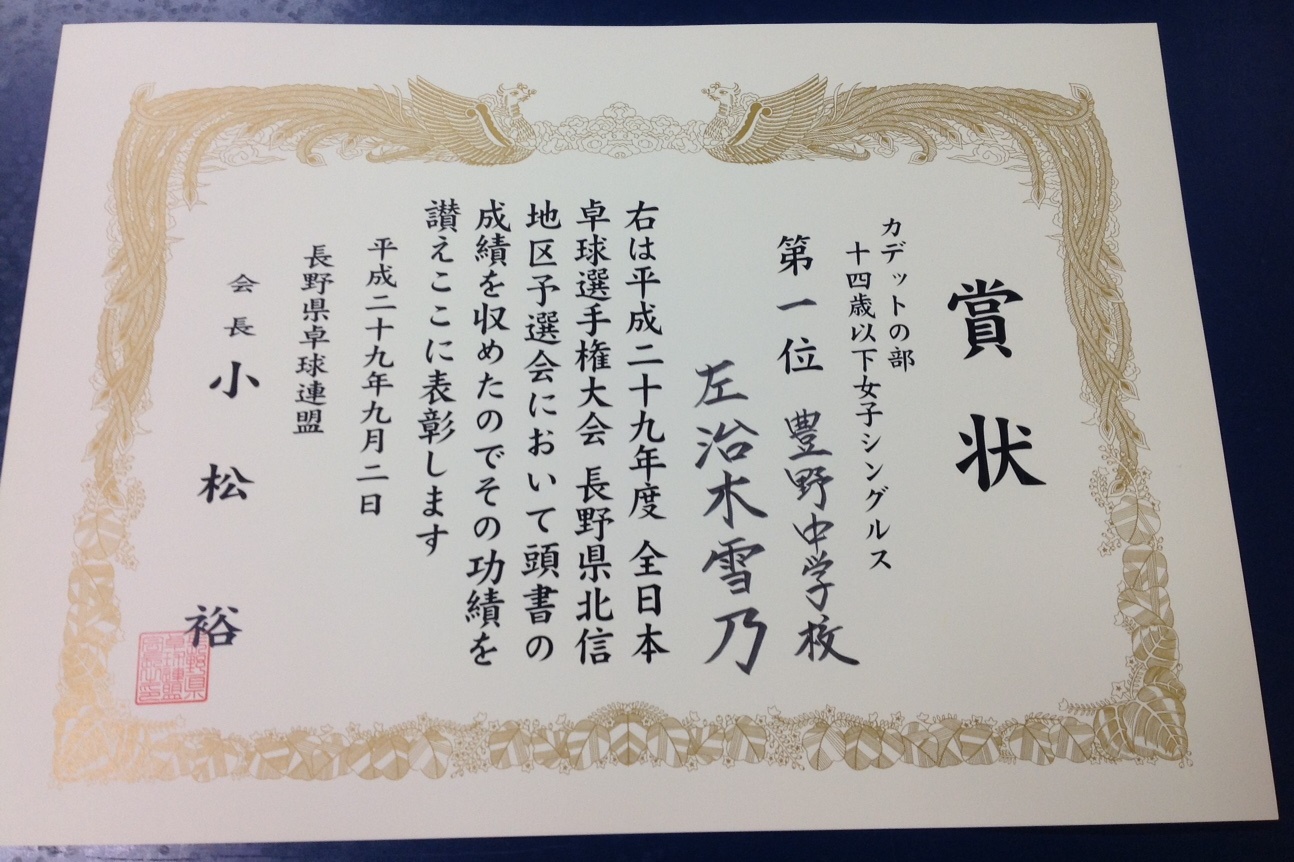 賞状
カデットの部
十四歳以下女子シングルス
第一位 豊野中学校
左治木雪乃
右は平成二十九年度 全日本
卓球選手権大会 長野県北信
地区予選会において頭書の
成績を収めたのでその功績を
讃えここに表彰します
平成二十九年九月二日
長野県卓球連盟
会長 小松 裕